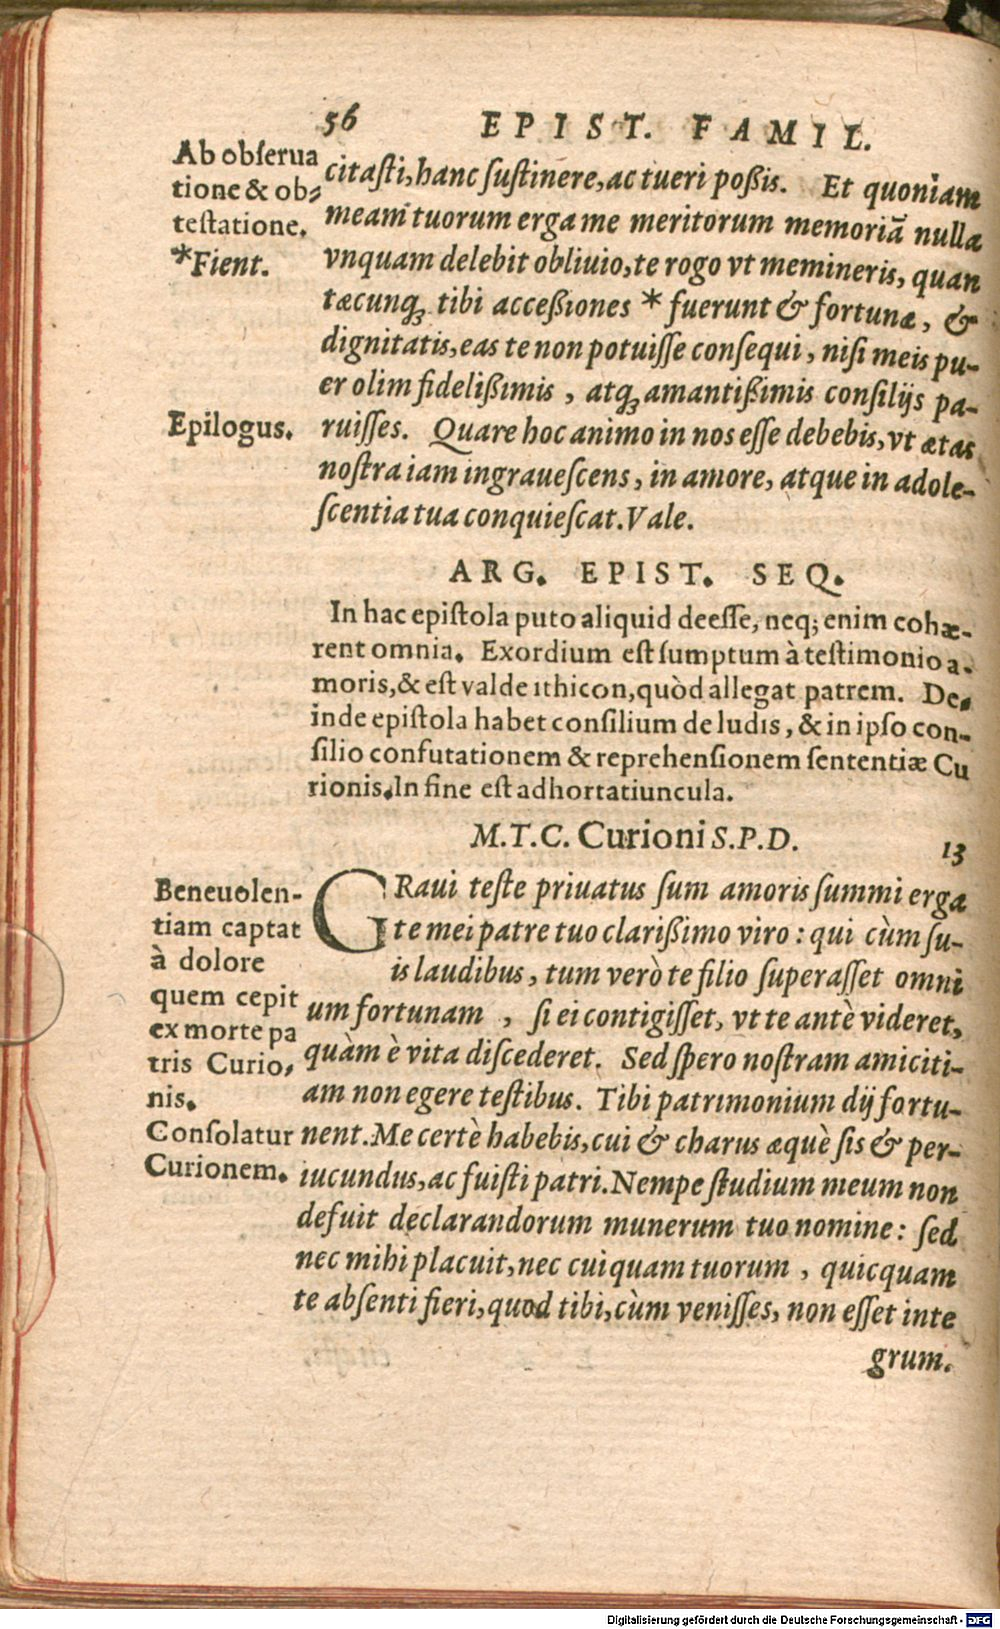 56 EPIST. FAMIL.
Ab obſerua
tione & ob-
teſtatione.
*Fient.
citaſti, hanc ſuſtinere, ac tueri poßis. Et quoniam
meam tuorum erga me meritorum memoriā nulla
vnquam delebit obliuio, te rogo vt memineris, quan
tæcunq; tibi acceßiones * fuerunt & fortunæ, &
dignitatis, eas te non potuiſſe conſequi, niſi meis pu-
er olim fidelißimis, atq; amantißimis conſilijs pa-
Epilogus.
ruiſſes. Quare hoc animo in nos eſſe debebis, vt ætas
noſtra iam ingraueſcens, in amore, atque in adole-
ſcentia tua conquieſcat. Vale.
ARG. EPIST. SEQ.
In hac epiſtola puto aliquid deeſſe, neq; enim cohæ-
rent omnia. Exordium eſt ſumptum à teſtimonio a-
moris, & eſt valde ithicon, quòd allegat patrem. De-
inde epiſtola habet conſilium de ludis, & in ipſo con-
ſilio confutationem & reprehenſionem ſententiæ Cu
rionis. In fine eſt adhortatiuncula.
M.T.C. Curioni S.P.D. 13
Beneuolen-
tiam captat
à dolore
quem cepit
ex morte pa
tris Curio-
nis.
Conſolatur
Curionem.
GRaui teſte priuatus ſum amoris ſummi erga
te mei patre tuo clarißimo viro: qui cùm ſu-
is laudibus, tum verò te filio ſuperaſſet omni
um fortunam, ſi ei contigiſſet, vt te antè videret,
quàm è vita diſcederet. Sed ſpero noſtram amiciti-
am non egere teſtibus. Tibi patrimonium dij fortu-
nent. Me certè habebis, cui & charus æquè ſis & per-
iucundus, ac fuiſti patri. Nempe ſtudium meum non
defuit declarandorum munerum tuo nomine: ſed
nec mihi placuit, nec cuiquam tuorum, quicquam
te abſenti fieri, quod tibi, cùm veniſſes, non eſſet inte
grum.
Digitalisierung gefördert durch die Deutsche Forschungsgemeinschaft - DFG